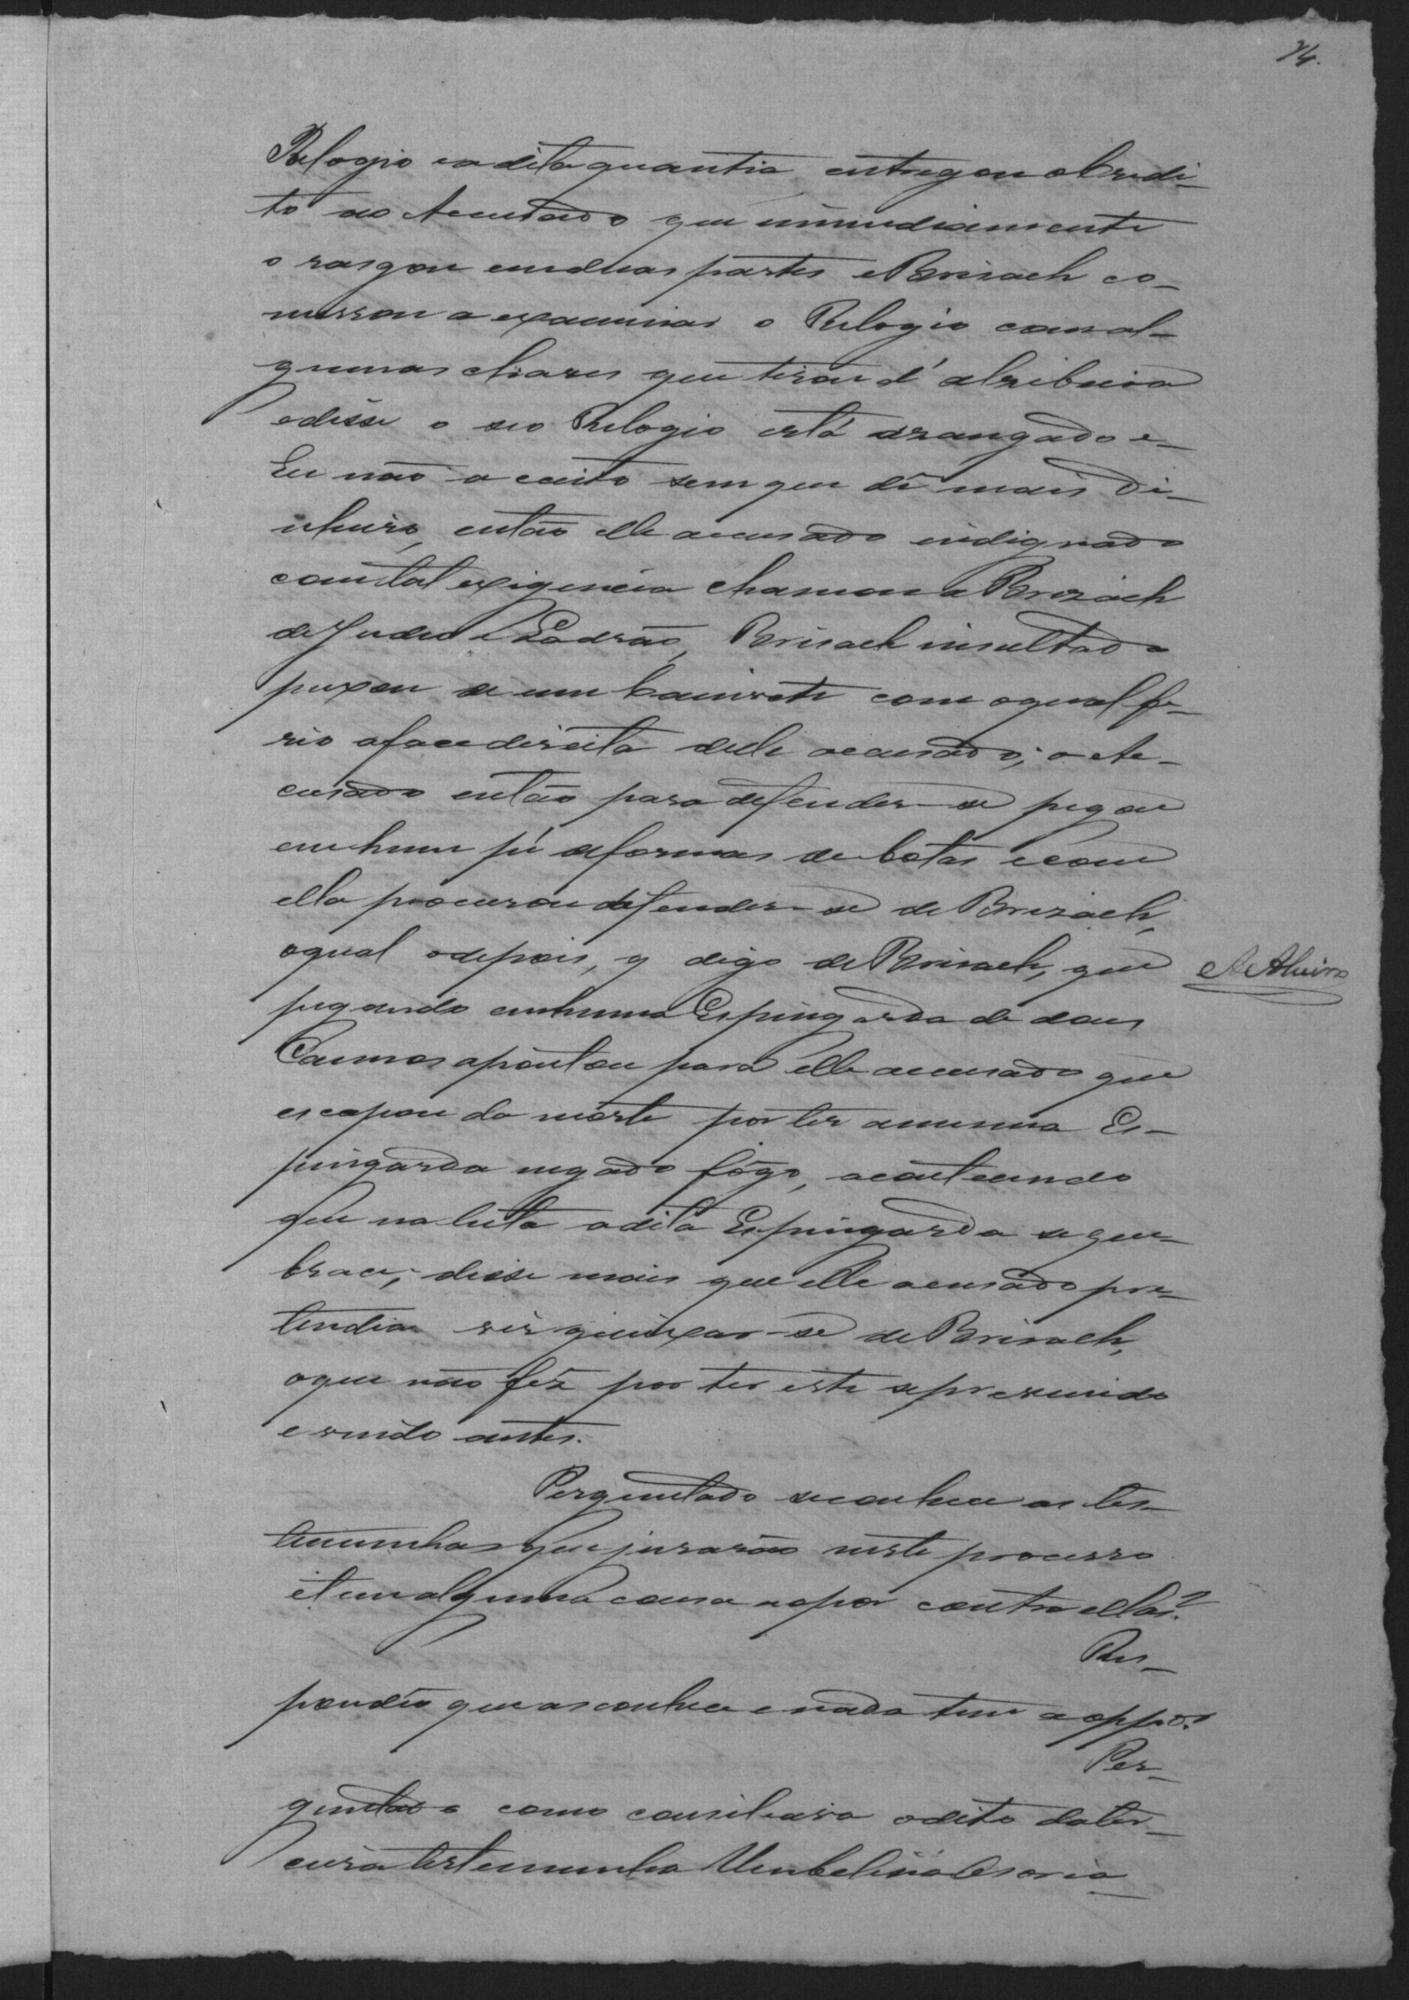 74.
Relogio e a dita quantia entregou o Credi-
to ao Accusado que immediamente
o rasgou em duas partes e Brisach co-
messou a examinar o Relogio com al-
gumas chaves que tirou d'algibeira
e disse o seo Relogio está arangado e-
Eu não aceito sem que dê mais di-
nheiro, então elle accusado indignado
com tal exigencia chamou a Brizach
de Judeo e Ladrão, Brisach insultado
puxou de um Canivete com o qual fe-
rio a face direita delle accusado; o Ac-
cusado então para defender-se pegou
em hum pé de formas de botas e com
ella procurou defender-se de Brizach,
o qual depois, q digo de Brisach, que
A Aluiro
pegando em huma Espingarda de dous
Cannos apontou para elle accusado que
escapou da morte por ter a mesma Es-
pingarda negado fôgo, acontecendo
que na luta a dita Espingarda se que-
brace; disse mais que elle acusado pre-
tendia vir queixar-se de Brisach,
o que não fêz por ter este se presumido
e vindo antes.
Perguntado se conhece as tes-
temunhas que jurarão neste processo
e tem alguma cousa a opor contra ellas?
Res-
pondêo que as conhece e nada tem a oppôr
Per-
guntado como consiliava o dito da ter-
ceira testemunha Umbelina Cesaria